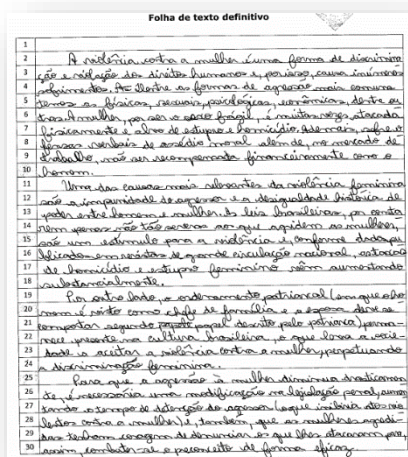 Folha de texto definitivo
1
2 A violência contra a mulher é uma forma de discrimina
3 ção e violação dos direitos humanos e, por isso, causa inúmeros
4 sofrimentos. Dentre as formas de agressão mais comuns
5 temos as físicas, sexuais, psicológicas, econômicas, dentre ou
6 tras. A mulher, por ser o sexo frágil, é muitas vezes atacada
7 fisicamente e alvo de estupro e homicídio. Ademais, sofre o
8 fensas verbais de assédio moral além de, no mercado de
9 trabalho, não ser recompensada financeiramente como o
10 homem.
11 Uma das causas mais relevantes da violência feminina
12 são a impunidade do agressor e a desigualdade histórica de
13 poder entre homem e mulher. As leis brasileiras, por conta
14 rem penas não tão severas ao que agridem as mulheres,
15 são um estímulo para a violência e, conforme dados pu
16 blicados em revistas de grande circulação nacional, os
17 de homicídio e estupro feminino vêm aumentando
18 substancialmente.
19 Por outro lado, o ordenamento patriarcal (em que o ho
20 mem é visto como chefe de família e a esposa deve se
21 comportar segundo papel descrito pelo patriarca) perma-
22 nece presente na cultura brasileira, o que leva a socie
23 dade a aceitar a violência contra a mulher, perpetuando
24 a discriminação feminina.
25 Para que a agressão à mulher diminua drasticamen
26 te, é necessária uma modificação na legislação penal, aumen
27 tando o tempo de detenção do agressor (o que inibiria atos vio
28 lentos contra a mulher) e, também, que as mulheres agredi
29 das tenham coragem de denunciar o que lhes atacaram para,
30 assim, combater-se o preconceito de forma eficaz.